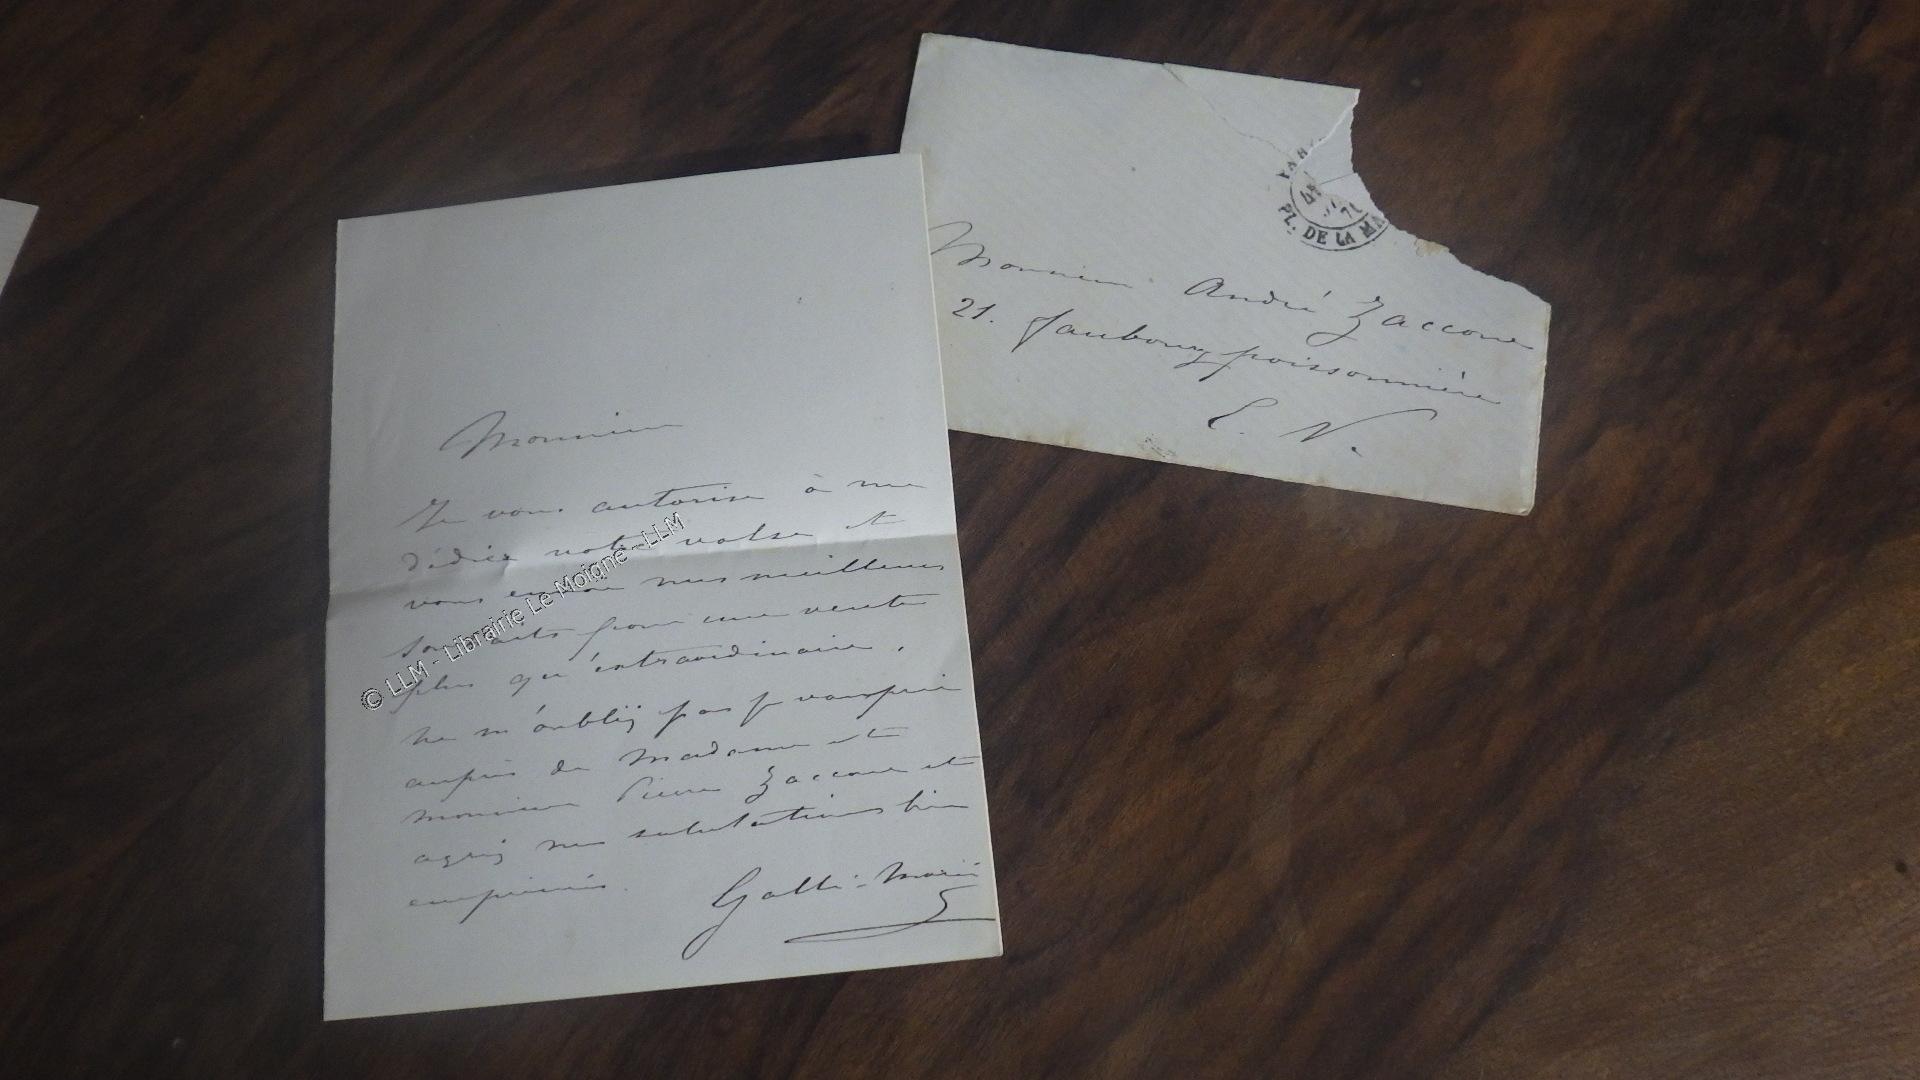 Monsieur
Je vous autorise à me
dédier votre valse et
vous envoie mes meilleurs
souhaits pour une vente
plus qu'extraordinaire.
ne m'oubliez pas je vous prie
auprès de Madame et
monsieur Pierre Zaccone et
agréez mes salutations bien
empressées.
Galli-Marié
Monsieur André Zaccone
21. faubourg poissonnière
E. V.
PL. DE LA MA
© LLM - Librairie Le Moigne - LLM